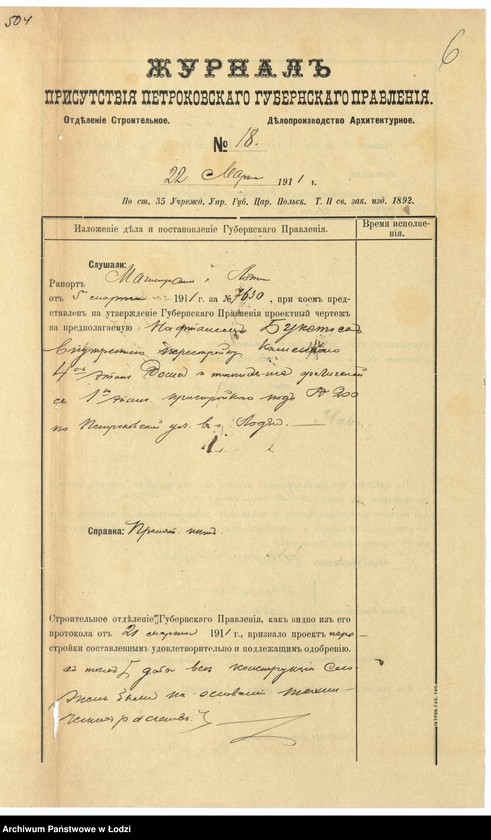 504
6
ЖУРНАЛЪ
ПРИСУТСТВІЯ ПЕТРОКОВСКАГО ГУБЕРНСКАГО ПРАВЛЕНІЯ.
Отдѣленіе Строительное.
Дѣлопроизводство Архитектурное.
№ 18.
22 Марта 1911 г.
По ст. 35 Учрежд. Упр. Губ. Цар. Польск. Т. II св. зак. изд. 1892.
Изложеніе дѣла и постановленіе Губернскаго Правленія.
Время исполненія.
Слушали:
Рапортъ Магистрата г. Лодзи
отъ 5 марта 1911 г. за № 7630, при коемъ пред-
ставленъ на утвержденіе Губернскаго Правленія проектный чертежъ
на предполагаемую
внутреннюю перестройку
4 этаж. дома и
съ 1 этаж. пристройкою подъ № 200
по Петроковской ул. въ г. Лодзи.
Справка:
Строительное отдѣленіе Губернскаго Правленія, какъ видно изъ его
протокола отъ 21 марта 1911 г., признало проектъ пере-
стройки составленнымъ удовлетворительно и подлежащимъ одобренію.
съ тѣмъ, дабы всѣ конструкціи
были на основаніи техни-
Archiwum Państwowe w Łodzi